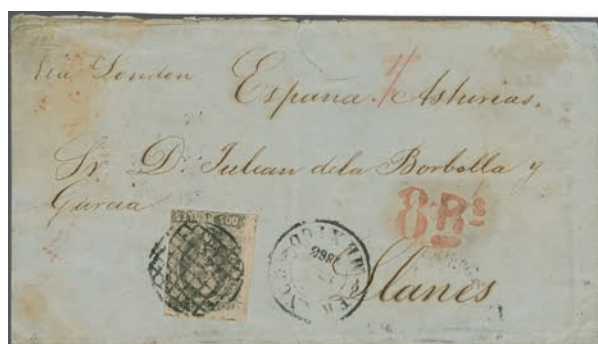 Via London
España. Asturias.
Sr. D. Julian de la Borbolla y
Garcia
DOS REALES
8 Rs
Llanes